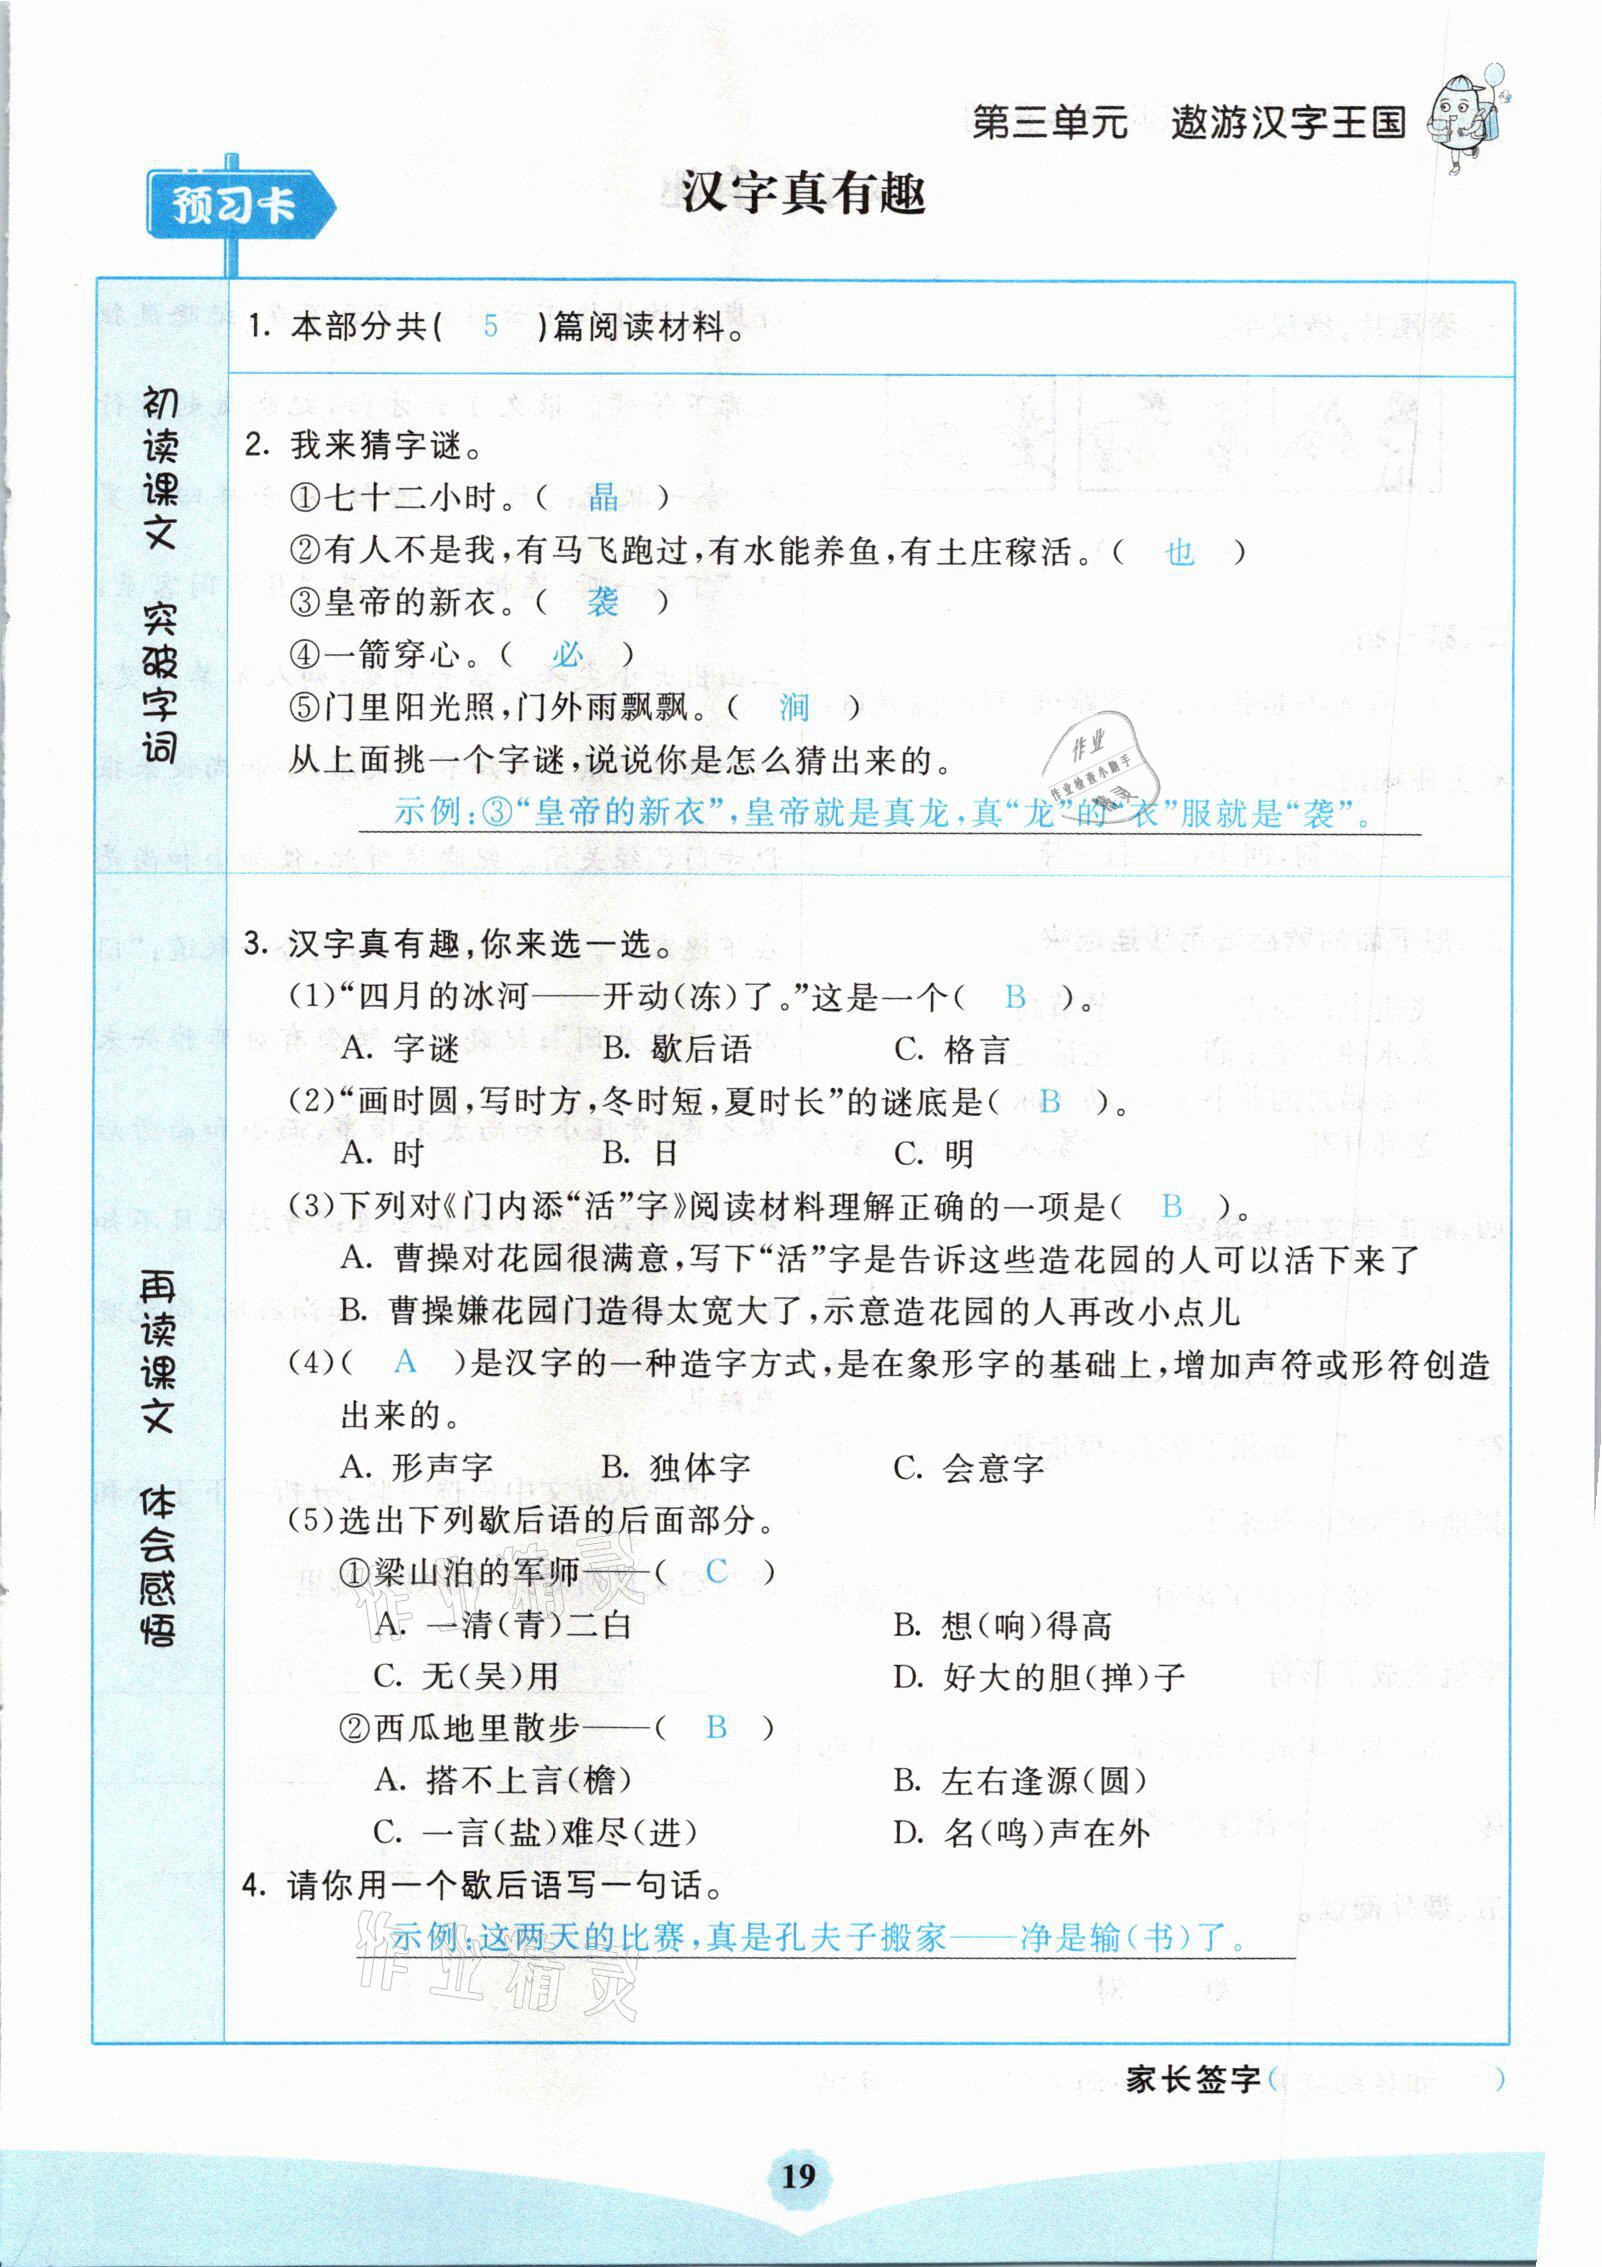 第三单元 遨游汉字王国
预习卡
汉字真有趣
初读课文 突破字词
1. 本部分共( 5 )篇阅读材料。
2. 我来猜字谜。
①七十二小时。( 晶 )
②有人不是我,有马飞跑过,有水能养鱼,有土庄稼活。( 也 )
③皇帝的新衣。( 袭 )
④一箭穿心。( 必 )
⑤门里阳光照,门外雨飘飘。( 涧 )
从上面挑一个字谜,说说你是怎么猜出来的。
示例:③“皇帝的新衣”,皇帝就是真龙,真“龙”的“衣”服就是“袭”。
再读课文 体会感悟
3. 汉字真有趣,你来选一选。
(1)“四月的冰河——开动(冻)了。”这是一个( B )。
A. 字谜 B. 歇后语 C. 格言
(2)“画时圆,写时方,冬时短,夏时长”的谜底是( B )。
A. 时 B. 日 C. 明
(3)下列对《门内添“活”字》阅读材料理解正确的一项是( B )。
A. 曹操对花园很满意,写下“活”字是告诉这些造花园的人可以活下来了
B. 曹操嫌花园门造得太宽大了,示意造花园的人再改小点儿
(4)( A )是汉字的一种造字方式,是在象形字的基础上,增加声符或形符创造
出来的。
A. 形声字 B. 独体字 C. 会意字
(5)选出下列歇后语的后面部分。
①梁山泊的军师——( C )
A. 一清(青)二白 B. 想(响)得高
C. 无(吴)用 D. 好大的胆(掸)子
②西瓜地里散步——( B )
A. 搭不上言(檐) B. 左右逢源(圆)
C. 一言(盐)难尽(进) D. 名(鸣)声在外
4. 请你用一个歇后语写一句话。
示例:这两天的比赛,真是孔夫子搬家——净是输(书)了。
作业
作业检查小助手
精灵
作业精灵
作业精灵
家长签字( )
19